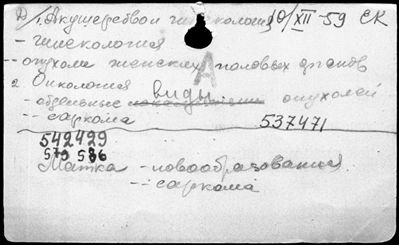 1. Акушерство и гинекология 10/XII-59 ЕК
- гинекология
-- опухоли женских половых органов
А
2. Онкология виды
- отдельные опухолей
-- саркома 537471
542429
579 586
Матка - новообразования
-- саркома